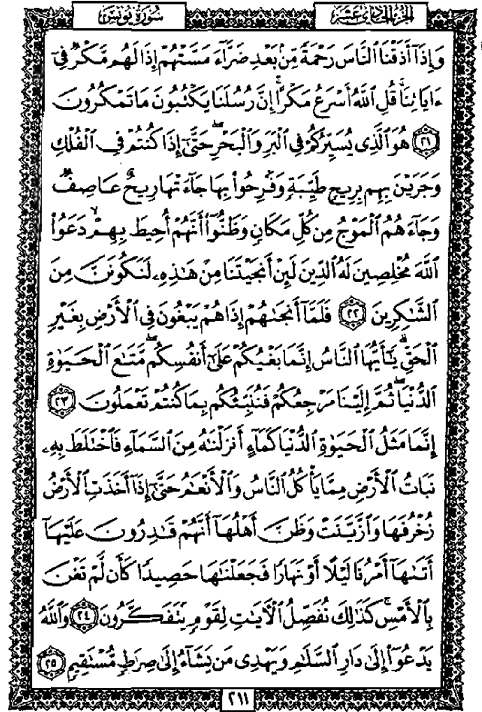 سُورَةُ يُونُسَ
الجُزْءُ الحَادِي عَشَرَ
وَإِذَآ أَذَقْنَا ٱلنَّاسَ رَحْمَةً مِّنۢ بَعْدِ ضَرَّآءَ مَسَّتْهُمْ إِذَا لَهُم مَّكْرٌ فِىٓ
ءَايَاتِنَا ۚ قُلِ ٱللَّهُ أَسْرَعُ مَكْرًا ۚ إِنَّ رُسُلَنَا يَكْتُبُونَ مَا تَمْكُرُونَ
٢١ هُوَ ٱلَّذِى يُسَيِّرُكُمْ فِى ٱلْبَرِّ وَٱلْبَحْرِ ۖ حَتَّىٰٓ إِذَا كُنتُمْ فِى ٱلْفُلْكِ
وَجَرَيْنَ بِهِم بِرِيحٍ طَيِّبَةٍ وَفَرِحُوا۟ بِهَا جَآءَتْهَا رِيحٌ عَاصِفٌ
وَجَآءَهُمُ ٱلْمَوْجُ مِن كُلِّ مَكَانٍ وَظَنُّوٓا۟ أَنَّهُمْ أُحِيطَ بِهِمْ ۙ دَعَوُا۟
ٱللَّهَ مُخْلِصِينَ لَهُ ٱلدِّينَ لَئِنْ أَنجَيْتَنَا مِنْ هَٰذِهِۦ لَنَكُونَنَّ مِنَ
ٱلشَّٰكِرِينَ ٢٢ فَلَمَّآ أَنجَىٰهُمْ إِذَا هُمْ يَبْغُونَ فِى ٱلْأَرْضِ بِغَيْرِ
ٱلْحَقِّ ۗ يَٰٓأَيُّهَا ٱلنَّاسُ إِنَّمَا بَغْيُكُمْ عَلَىٰٓ أَنفُسِكُم ۖ مَّتَٰعَ ٱلْحَيَوٰةِ
ٱلدُّنْيَا ۖ ثُمَّ إِلَيْنَا مَرْجِعُكُمْ فَنُنَبِّئُكُم بِمَا كُنتُمْ تَعْمَلُونَ ٢٣
إِنَّمَا مَثَلُ ٱلْحَيَوٰةِ ٱلدُّنْيَا كَمَآءٍ أَنزَلْنَٰهُ مِنَ ٱلسَّمَآءِ فَٱخْتَلَطَ بِهِۦ
نَبَاتُ ٱلْأَرْضِ مِمَّا يَأْكُلُ ٱلنَّاسُ وَٱلْأَنْعَٰمُ حَتَّىٰٓ إِذَآ أَخَذَتِ ٱلْأَرْضُ
زُخْرُفَهَا وَٱزَّيَّنَتْ وَظَنَّ أَهْلُهَآ أَنَّهُمْ قَٰدِرُونَ عَلَيْهَآ
أَتَىٰهَآ أَمْرُنَا لَيْلًا أَوْ نَهَارًا فَجَعَلْنَٰهَا حَصِيدًا كَأَن لَّمْ تَغْنَ
بِٱلْأَمْسِ ۚ كَذَٰلِكَ نُفَصِّلُ ٱلْءَايَٰتِ لِقَوْمٍ يَتَفَكَّرُونَ ٢٤ وَٱللَّهُ
يَدْعُوٓا۟ إِلَىٰ دَارِ ٱلسَّلَٰمِ وَيَهْدِى مَن يَشَآءُ إِلَىٰ صِرَٰطٍ مُّسْتَقِيمٍ ٢٥
٢١١